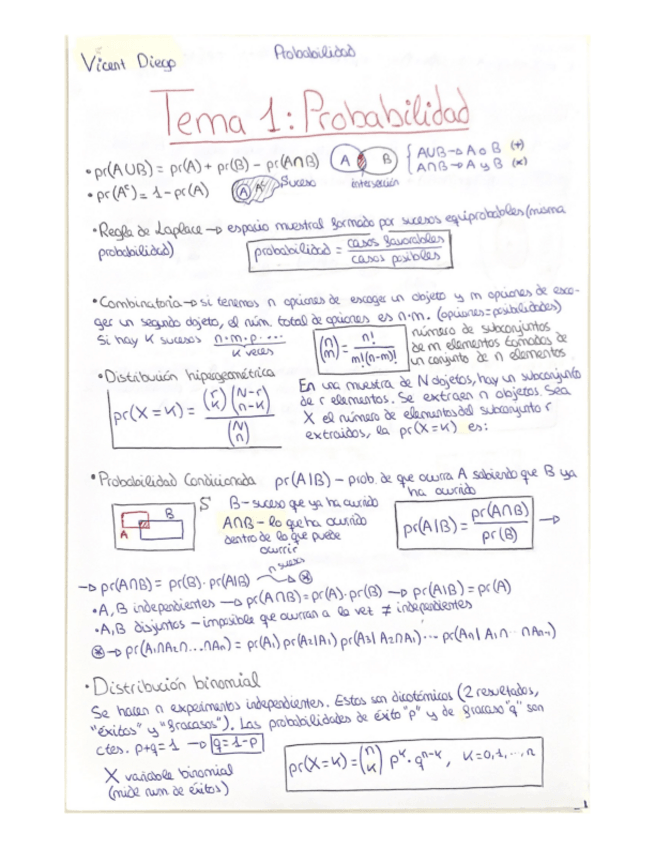 Vicent Diego
Probabilidad
Tema 1: Probabilidad
• pr(A∪B) = pr(A) + pr(B) - pr(A∩B)
A B
{ A∪B → A o B (+)
A∩B → A y B (×)
• pr(Aᶜ) = 1 - pr(A)
A Aᶜ
Suceso
intersección
• Regla de Laplace → espacio muestral formado por sucesos equiprobables (misma
probabilidad)
probabilidad = casos favorables / casos posibles
• Combinatoria → si tenemos n opciones de escoger un objeto y m opciones de esco-
ger un segundo objeto, el núm. total de opciones es n·m. (opciones = posibilidades)
Si hay K sucesos n·m·p·... K veces
(n m) = n! / m!(n-m)!
número de subconjuntos
de m elementos tomados de
un conjunto de n elementos
• Distribución hipergeométrica
pr(X=K) = (r K) (N-r n-K) / (N n)
En una muestra de N objetos, hay un subconjunto
de r elementos. Se extraen n objetos. Sea
X el número de elementos del subconjunto r
extraidos, la pr(X=K) es:
• Probabilidad Condicionada pr(A|B) - prob. de que ocurra A sabiendo que B ya
ha ocurrido
S
B
A
B - suceso que ya ha ocurrido
A∩B - lo que ha ocurrido
dentro de lo que puede
ocurrir
pr(A|B) = pr(A∩B) / pr(B) →
→ pr(A∩B) = pr(B)·pr(A|B) n sucesos → ⊛
• A, B independientes → pr(A∩B) = pr(A)·pr(B) → pr(A|B) = pr(A)
• A, B disjuntos - imposible que ocurran a la vez ≠ independientes
⊛ → pr(A₁∩A₂∩...∩Aₙ) = pr(A₁) pr(A₂|A₁) pr(A₃|A₂∩A₁)... pr(Aₙ|A₁∩...∩Aₙ₋₁)
• Distribución binomial
Se hacen n experimentos independientes. Estos son dicotómicos (2 resultados,
"éxitos" y "fracasos"). Las probabilidades de éxito "p" y de fracaso "q" son
ctes. p+q=1 → q=1-p
X variable binomial
(mide num de éxitos)
pr(X=K) = (n K) pᴷ·qⁿ⁻ᴷ, K=0,1,...,n
1